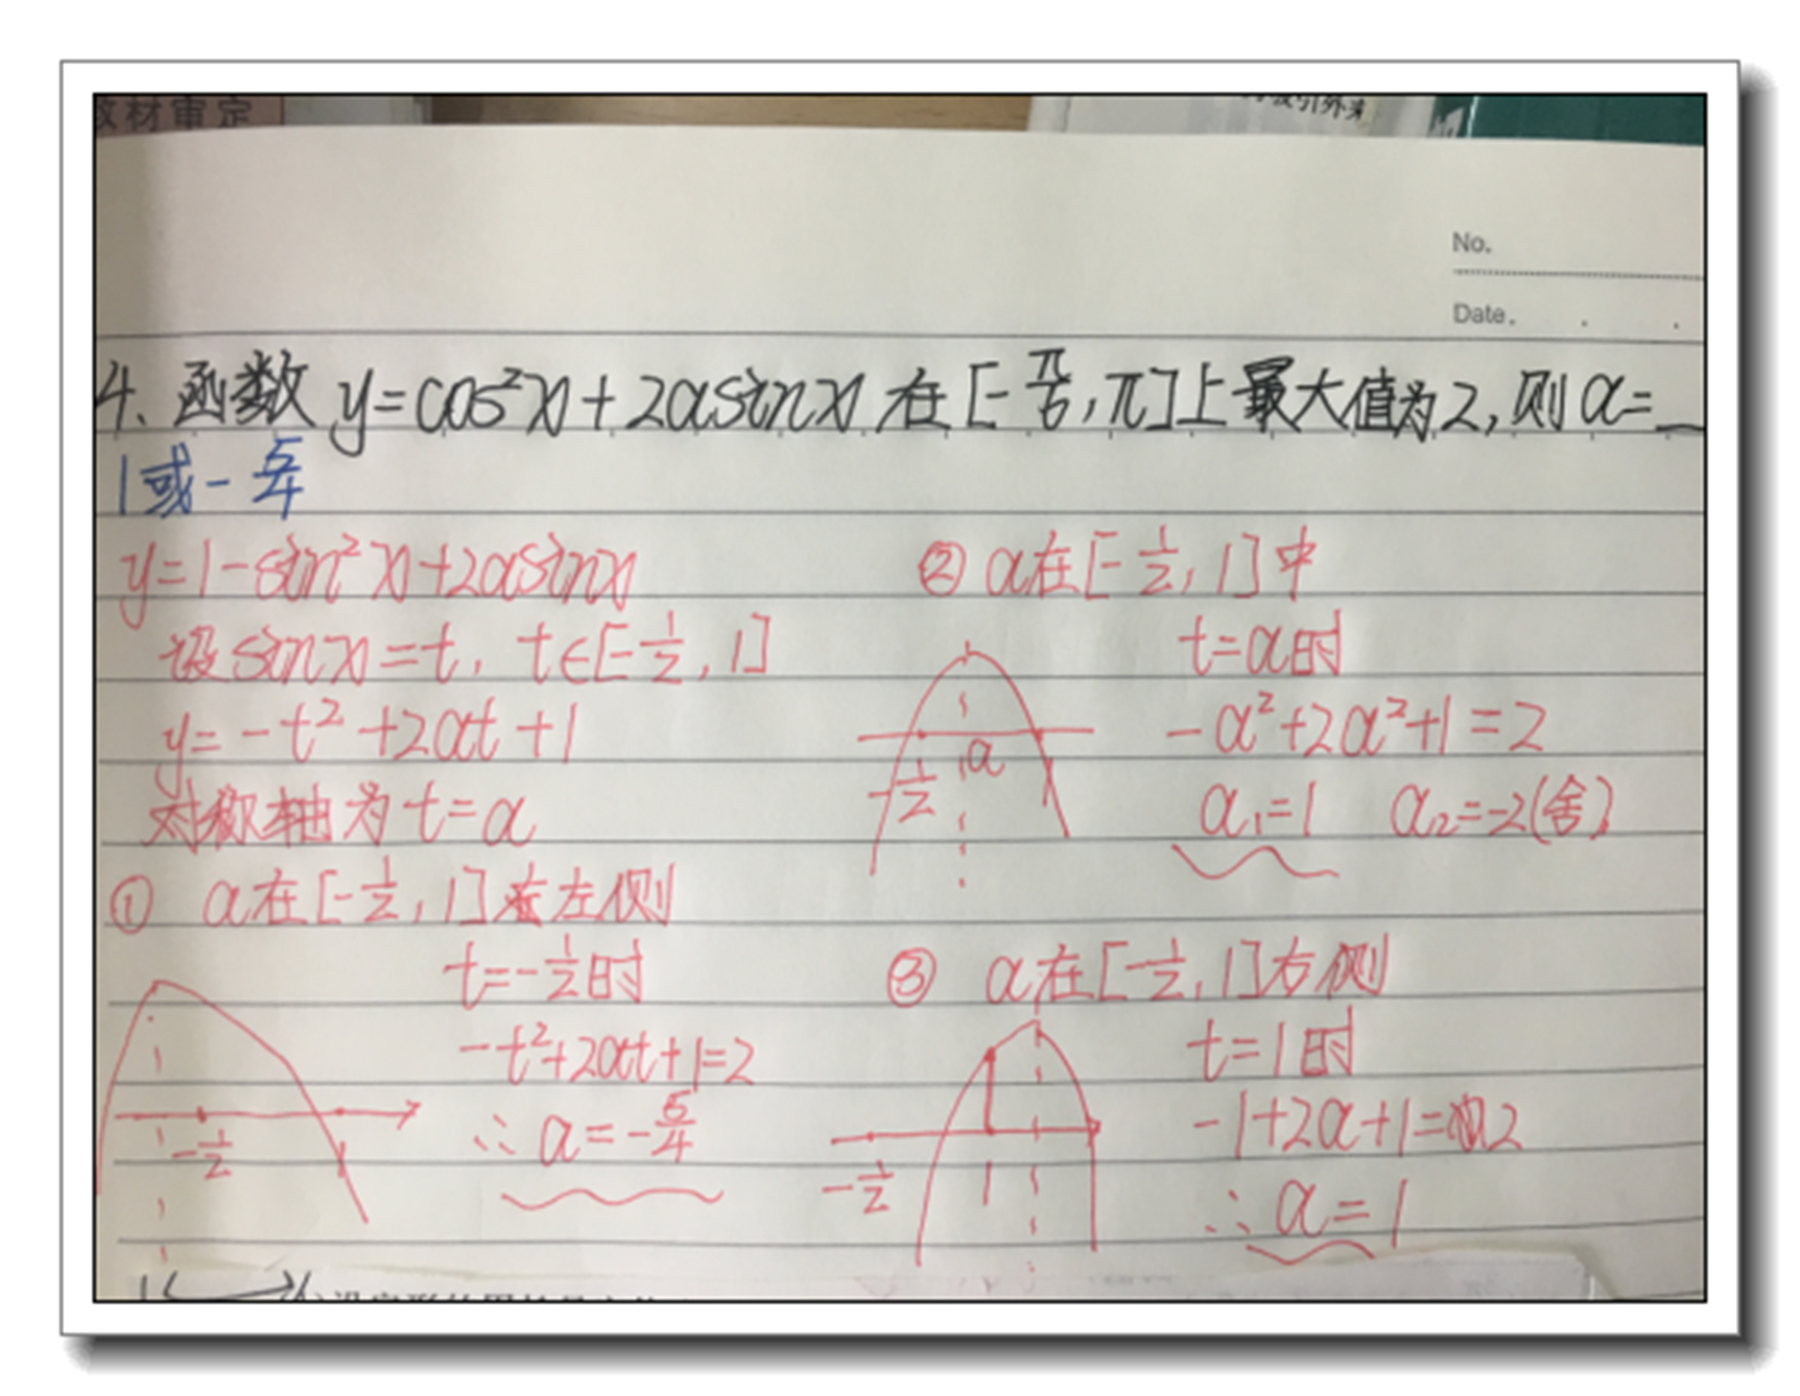 教材审定
吸引外来
No.
Date.
4. 函数 y=cos²x+2asinx 在[-π/6,π]上最大值为2,则a=__
1或-5/4
y=1-sin²x+2asinx
设sinx=t, t∈[-1/2,1]
y=-t²+2at+1
对称轴为t=a
① a在[-1/2,1]左侧
t=-1/2时
-t²+2at+1=2
∴a=-5/4
-1/2
1
② a在[-1/2,1]中
t=a时
-a²+2a²+1=2
a₁=1 a₂=-2(舍)
-1/2
a
1
③ a在[-1/2,1]右侧
t=1时
-1+2a+1=2
∴a=1
-1/2
1